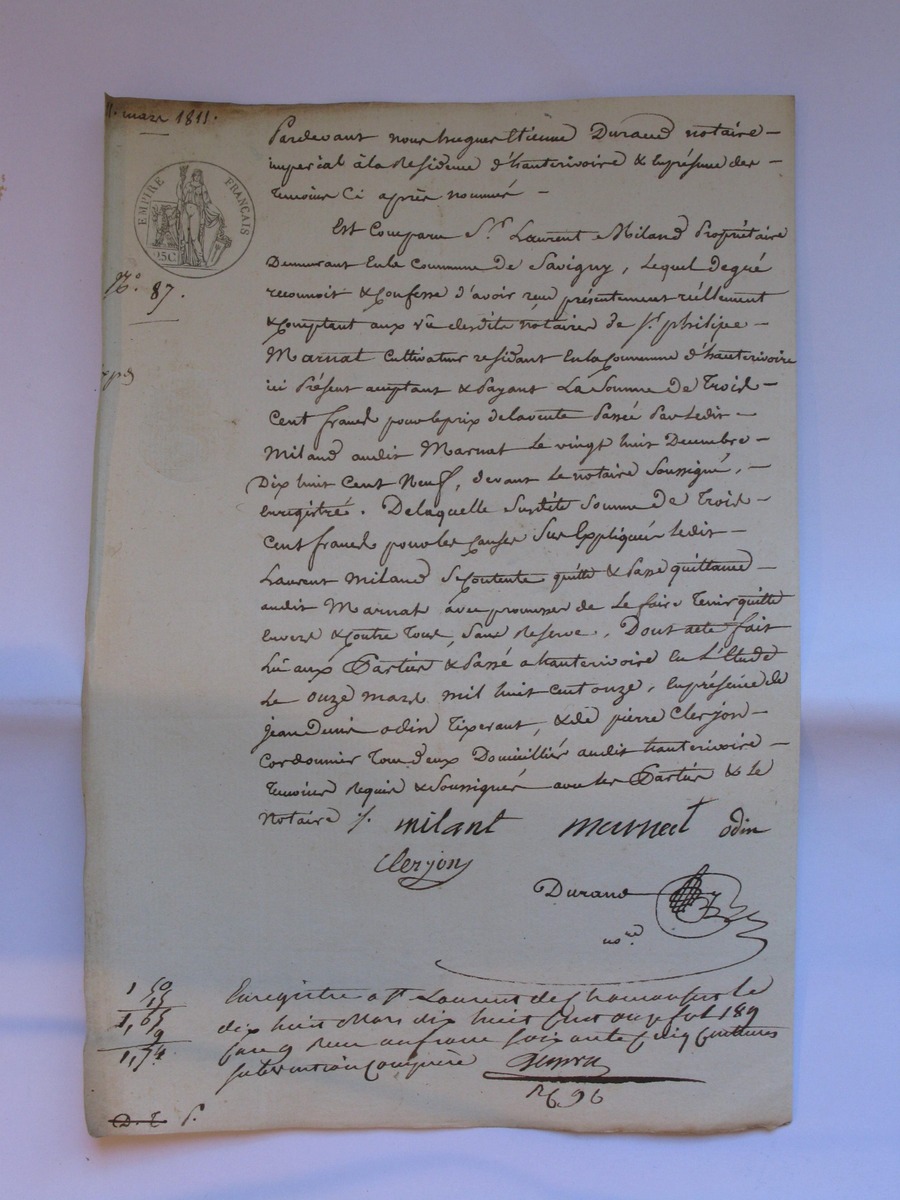 11. mars 1811.
EMPIRE FRANÇAIS
25C
N.º 87.
Pardevant nous hugues Etienne Durand notaire
imperial à la Residence d'hauterivoire & En présence des
temoins Ci après nommés
Est Comparu S.r Laurent Miland Propriétaire
Demeurant En la Commune de Savigny, lequel de gré
reconnoit & Confesse d'avoir reçu présentement réellement
& Comptant aux vûe desdits notaires de S.r philipe
Marnat Cultivateur residant En la Commune d'hauterivoire
ici Présent acceptant & Payant La Somme de Trois
Cent francs pour le prix de la vente Passée Par ledit
Miland audit Marnat Le vingt huit Decembre
Dix huit Cent Neuf, devant Le notaire Soussigné,
Enregistré. De laquelle Susdite Somme de Trois
Cent francs pour les Causes Sus Expliquées ledit
Laurent Miland Se Contente quitte & Passe quittance
audit Marnat avec promesse de Le faire Tenir quitte
Envers & Contre Tous, Sans Reserve. Dont acte fait
Lû aux Parties & Passé a hauterivoire En L'Etude
Le onze mars mil huit cent onze, En présence de
jean Denis odin Tixerant, & de pierre Clerjon
Cordonnier Tous deux Domicilliés audit hauterivoire
Temoins Requis & Soussignés avec les Parties & Le
Notaire /.
milant marnat odin
Clerjon
Durand
no.re
1 50
15
1,65
9
1,74
Enregistré a St Laurent de Chamousset le
dix huit Mars dix huit Cent onze fol 189
Case 9 Reçu un franc Soixante Cinq Centimes
Subvention Comprise
D. T P.